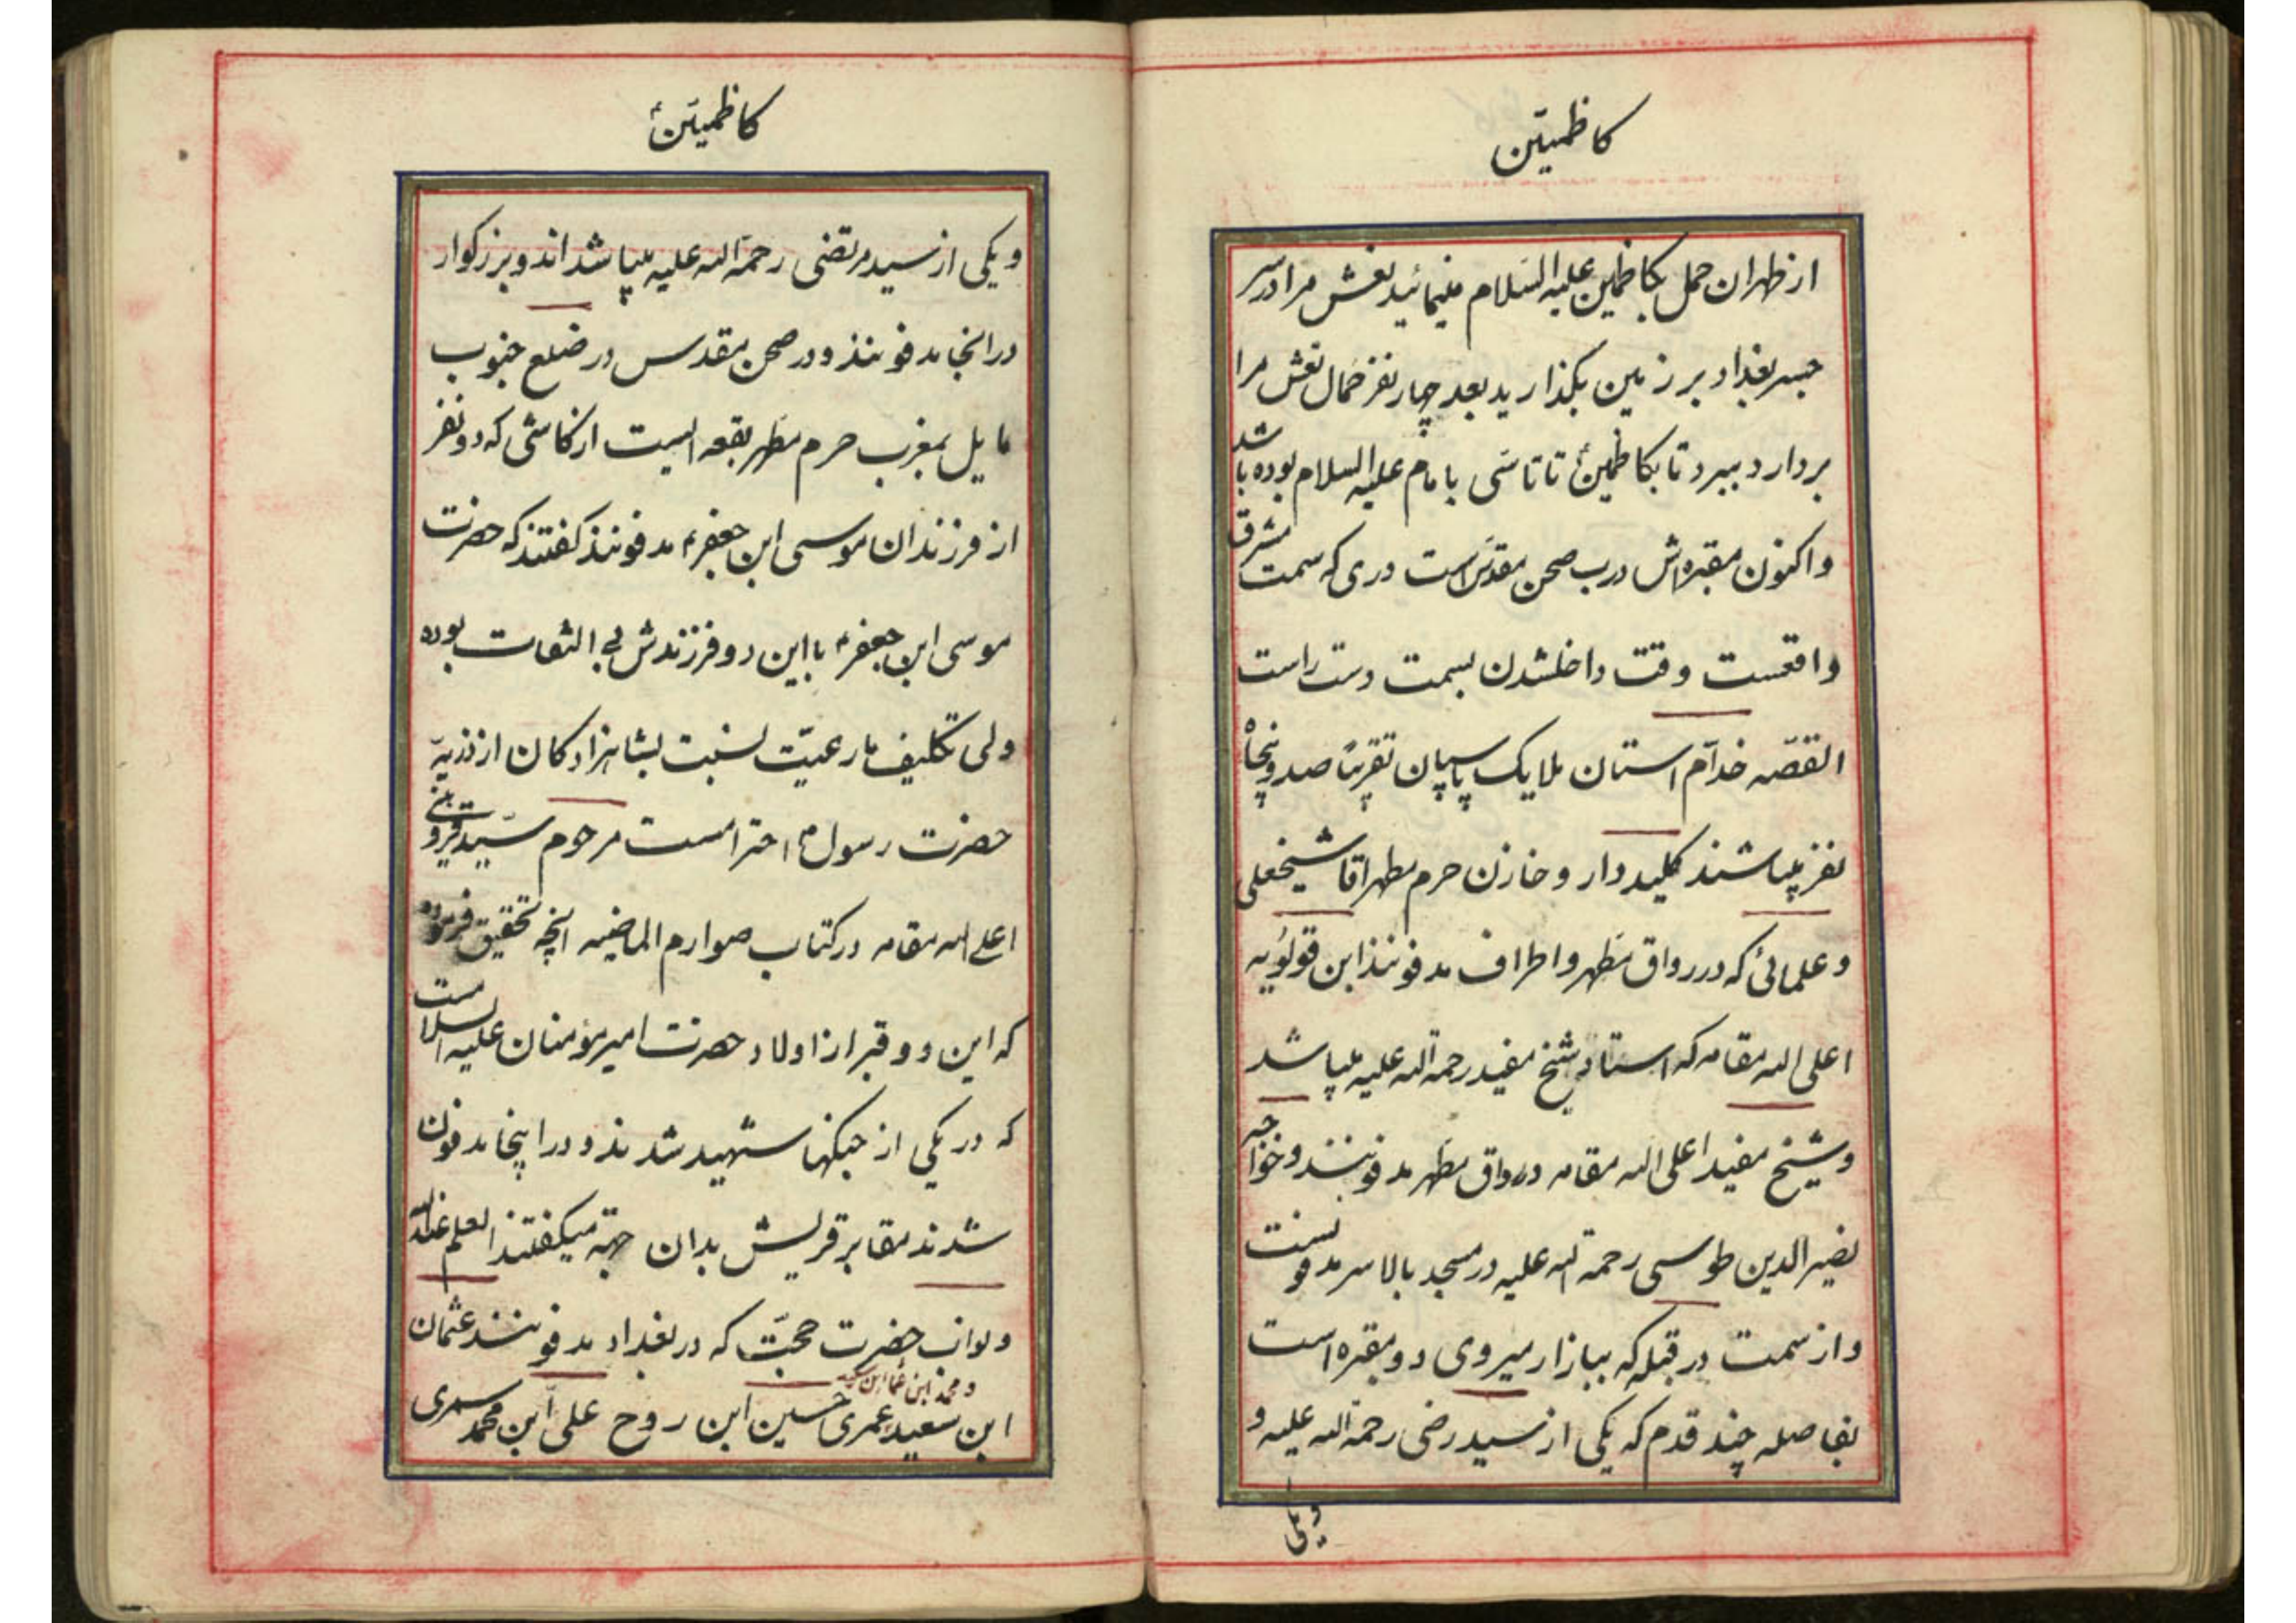 کاظمیّین
از طهران حمل بکاظمین علیه السّلام مینمائید نعش مرا در سر
جسر بغداد بر زمین بگذارید بعد چهار نفر حمال نعش مرا
بردارد ببرد تا بکاظمینؑ تا تاسّی بامام علیه السلام بوده باشد
و اکنون مقبره‌اش درب صحن مقدّس است دری که سمت مشرق
واقعست وقت داخلشدن بسمت دست راست
القصّه خدّام آستان ملایک پاسپان تقریبًا صد و پنجاه
نفر میباشند کلیددار و خازن حرم مطهر اقا شیخعلی
و علمائی که در رواق مطهر و اطراف مدفونند ابن قولویه
اعلی الله مقامه که استاد شیخ مفید رحمة الله علیه میباشد
و شیخ مفید اعلی الله مقامه در رواق مطهر مدفونند و خواجه
نصیرالدین طوسی رحمة الله علیه در مسجد بالاسر مدفونست
و از سمت در قبله که ببازار میروی دو مقبره است
بفاصله چند قدم که یکی از سید رضی رحمة الله علیه و
و یکی
کاظمیّینؑ
و یکی از سید مرتضی رحمة الله علیه میباشد اند و بزرکوار
در انجا مدفونند و در صحن مقدس در ضلع جنوب
مایل بمغرب حرم مطهر بقعه ایست از کاشی که دو نفر
از فرزندان موسی ابن جعفرؑ مدفونند کفتند که حضرت
موسی ابن جعفرؑ با این دو فرزندش بی التفات بوده
ولی تکلیف ما رعیّت نسبت بشاهزادکان از ذریّه
حضرت رسولؐ احترامست مرحوم سیّد قزوینی
اعلی الله مقامه در کتاب صوارم الماضیه انچه تحقیق فرموده
که این دو قبر از اولاد حضرت امیرمؤمنان علیه السلامست
که در یکی از جنکها شهید شدند و در اینجا مدفون
شدند مقابر قریش بدان جهة میکفتند العلم عندالله
و نواب حضرت حجّت که در بغداد مدفونند عثمان
و محمد ابن عثمان ابن سعید
ابن سعید عمری حسین ابن روح علی ابن محمد سمری